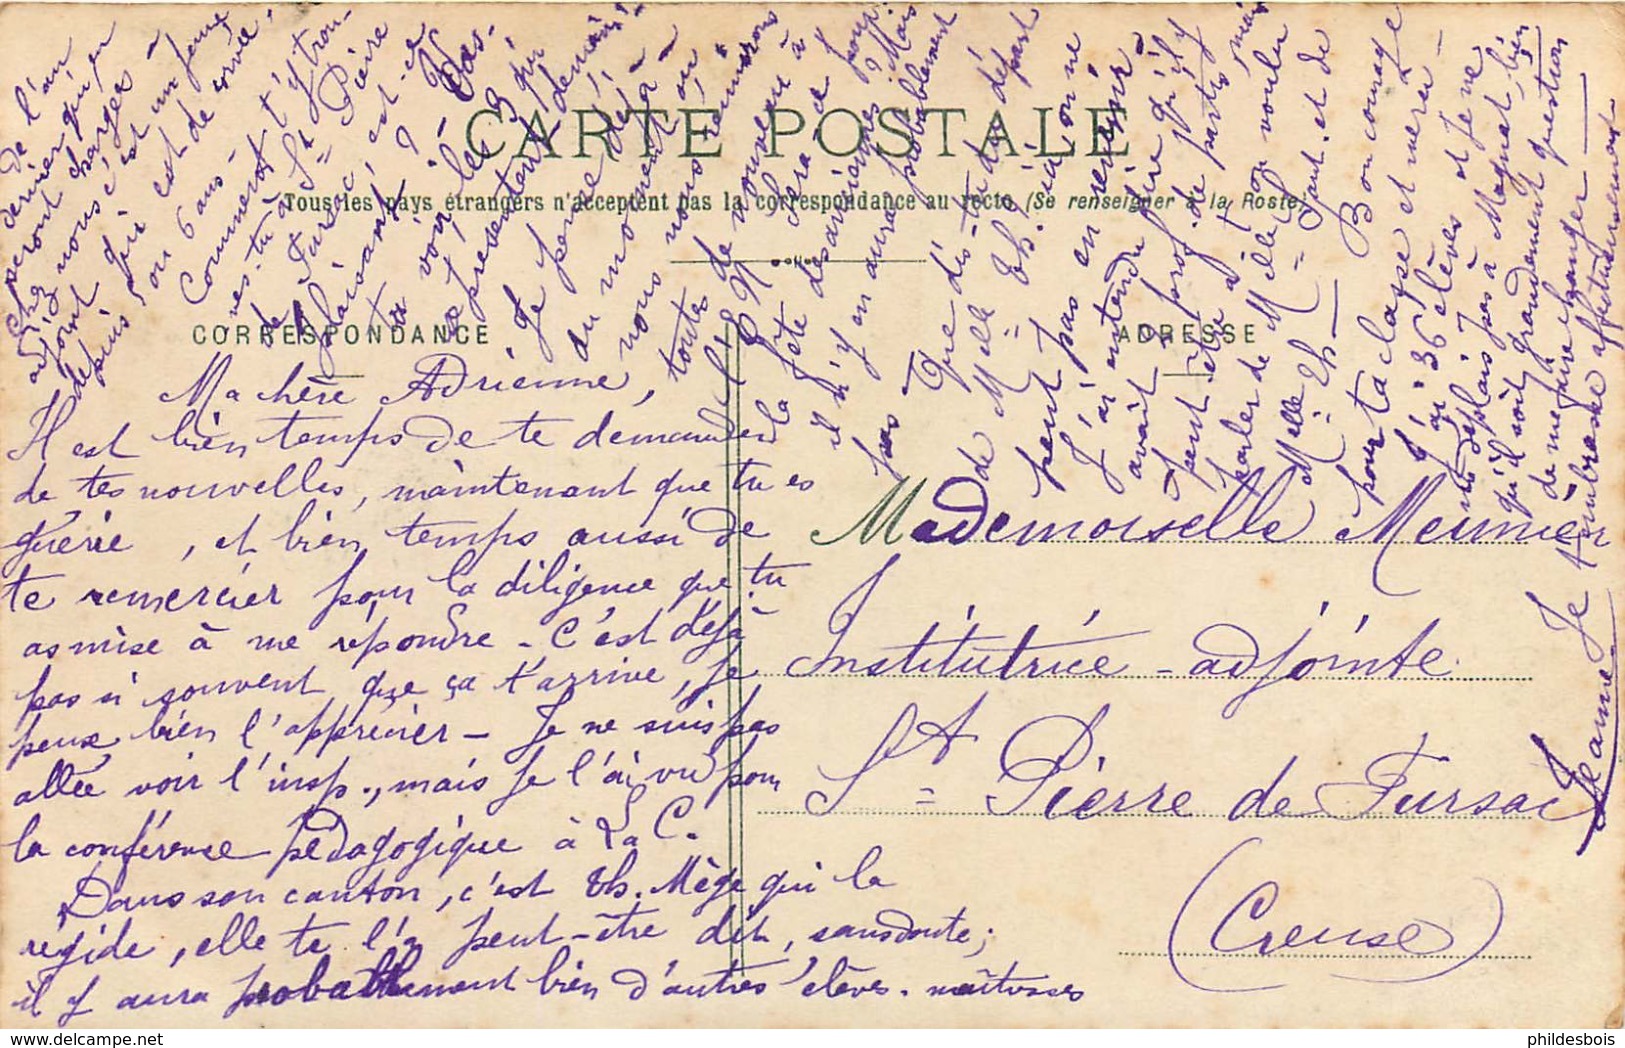 CARTE POSTALE
Tous les pays étrangers n'acceptent pas la correspondance au recto (Se renseigner à la Poste)
CORRESPONDANCE
ADRESSE
Ma chère Adrienne,
Il est bien temps de te demander
de tes nouvelles, maintenant que tu es
guérie, et bien temps aussi de
te remercier pour la diligence que tu
as mise à me répondre - C'est déjà
pas si souvent que ça t'arrive, je
peux bien l'apprécier - Je ne suis pas
allée voir l'insp., mais je l'ai vu pour
la conférence pédagogique à La C.
Dans son canton, c'est Th. Mège qui la
régide, elle te l'a peut-être dit, sans doute;
il y aura probablement bien d'autres élèves-maîtresses
de l'an
dernier qui en
seront chargées -
Chez nous c'est un jeune
adjoint qui est de corvée,
depuis 5 ou 6 ans -
Comment t'y trou-
ves-tu à St Pierre
de Fursac, est-ce
plaisant ?
ta voir les
se présentent demain!
Je pense déjà
au moment où
nous nous réunirons
toutes de nouveau à
l'E N
la fête sera
il n'y en aura probablement
pas -
Que dis-tu du départ
de Melle Th. ici on ne
peut pas en revenir
J'ai entendu dire qu'il y
avait prof. de partis, mais
peut-être a-t-on voulu
parler de Melle
Melle
M = Th -
Bon courage
pour ta classe et merci -
J'ai 36 élèves et je ne
me déplais pas à Magnat, bien
qu'il soit grandement question
de me faire changer -
Je t'embrasse affectueusement
Jeanne
Mademoiselle Meunier
Institutrice-adjointe
St Pierre de Fursac
(Creuse)
phildesbois